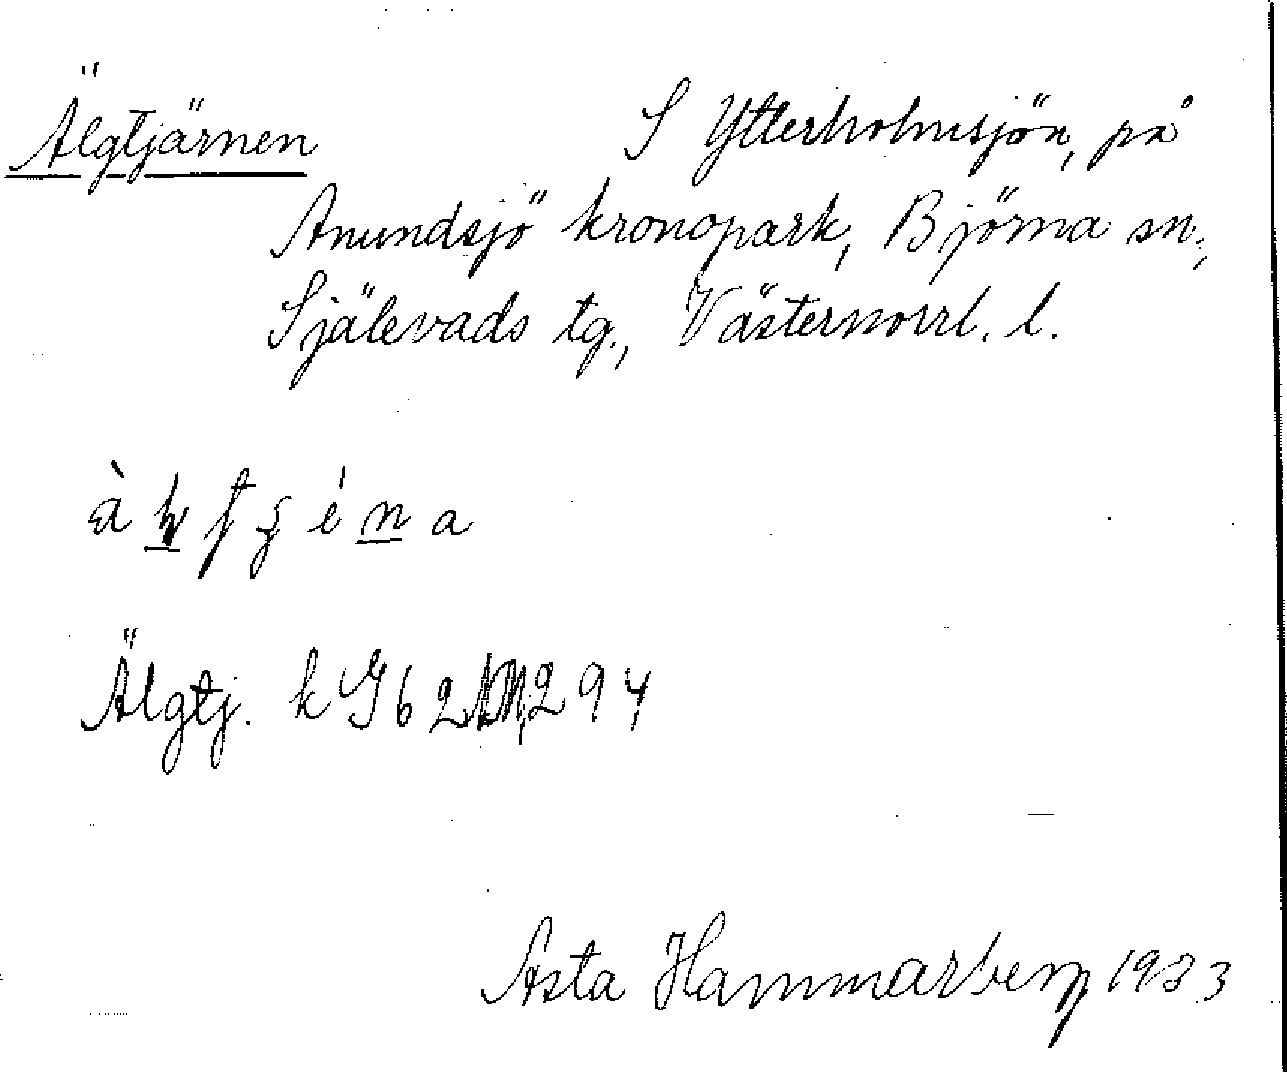 Älgtjärnen S Ytterholmsjön, på
Anundsjö kronopark, Björna sn.,
Själevads tg., Västernorrl. l.
Älgtj. k G 62 294
Asta Hammarberg 1933